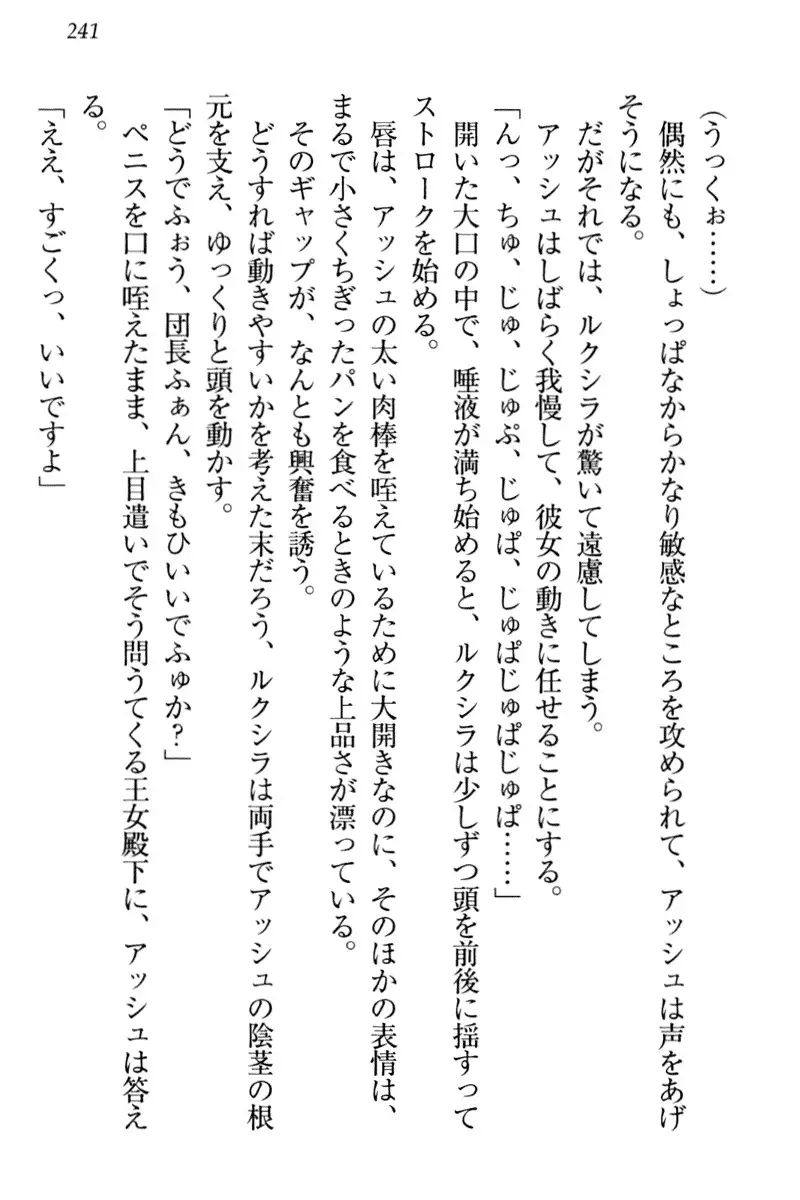 241
(うっくぉ……)
　偶然にも、しょっぱなからかなり敏感なところを攻められて、アッシュは声をあげ
そうになる。
　だがそれでは、ルクシラが驚いて遠慮してしまう。
　アッシュはしばらく我慢して、彼女の動きに任せることにする。
「んっ、ちゅ、じゅ、じゅぷ、じゅぱ、じゅぱじゅぱじゅぱ……」
　開いた大口の中で、唾液が満ち始めると、ルクシラは少しずつ頭を前後に揺すって
ストロークを始める。
　唇は、アッシュの太い肉棒を咥えているために大開きなのに、そのほかの表情は、
まるで小さくちぎったパンを食べるときのような上品さが漂っている。
　そのギャップが、なんとも興奮を誘う。
　どうすれば動きやすいかを考えた末だろう、ルクシラは両手でアッシュの陰茎の根
元を支え、ゆっくりと頭を動かす。
「どうでふぉう、団長ふぁん、きもひいいでふゅか?」
　ペニスを口に咥えたまま、上目遣いでそう問うてくる王女殿下に、アッシュは答え
る。
「ええ、すごくっ、いいですよ」